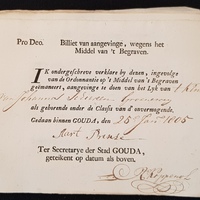 Pro Deo. Billiet van aangevinge, wegens het
Middel van 't Begraven.
IK ondergeschreve verklare by dezen, ingevolge
van de Ordonnantie op 't Middel van 't Begraven
geëmaneert, aangevinge te doen van het Lyk van
Johannes
als gehorende onder de Classis van d' onvermogende.
Gedaan binnen GOUDA, den 25 Jan 1805
Ter Secretarye der Stad GOUDA,
geteikent op datum als boven.